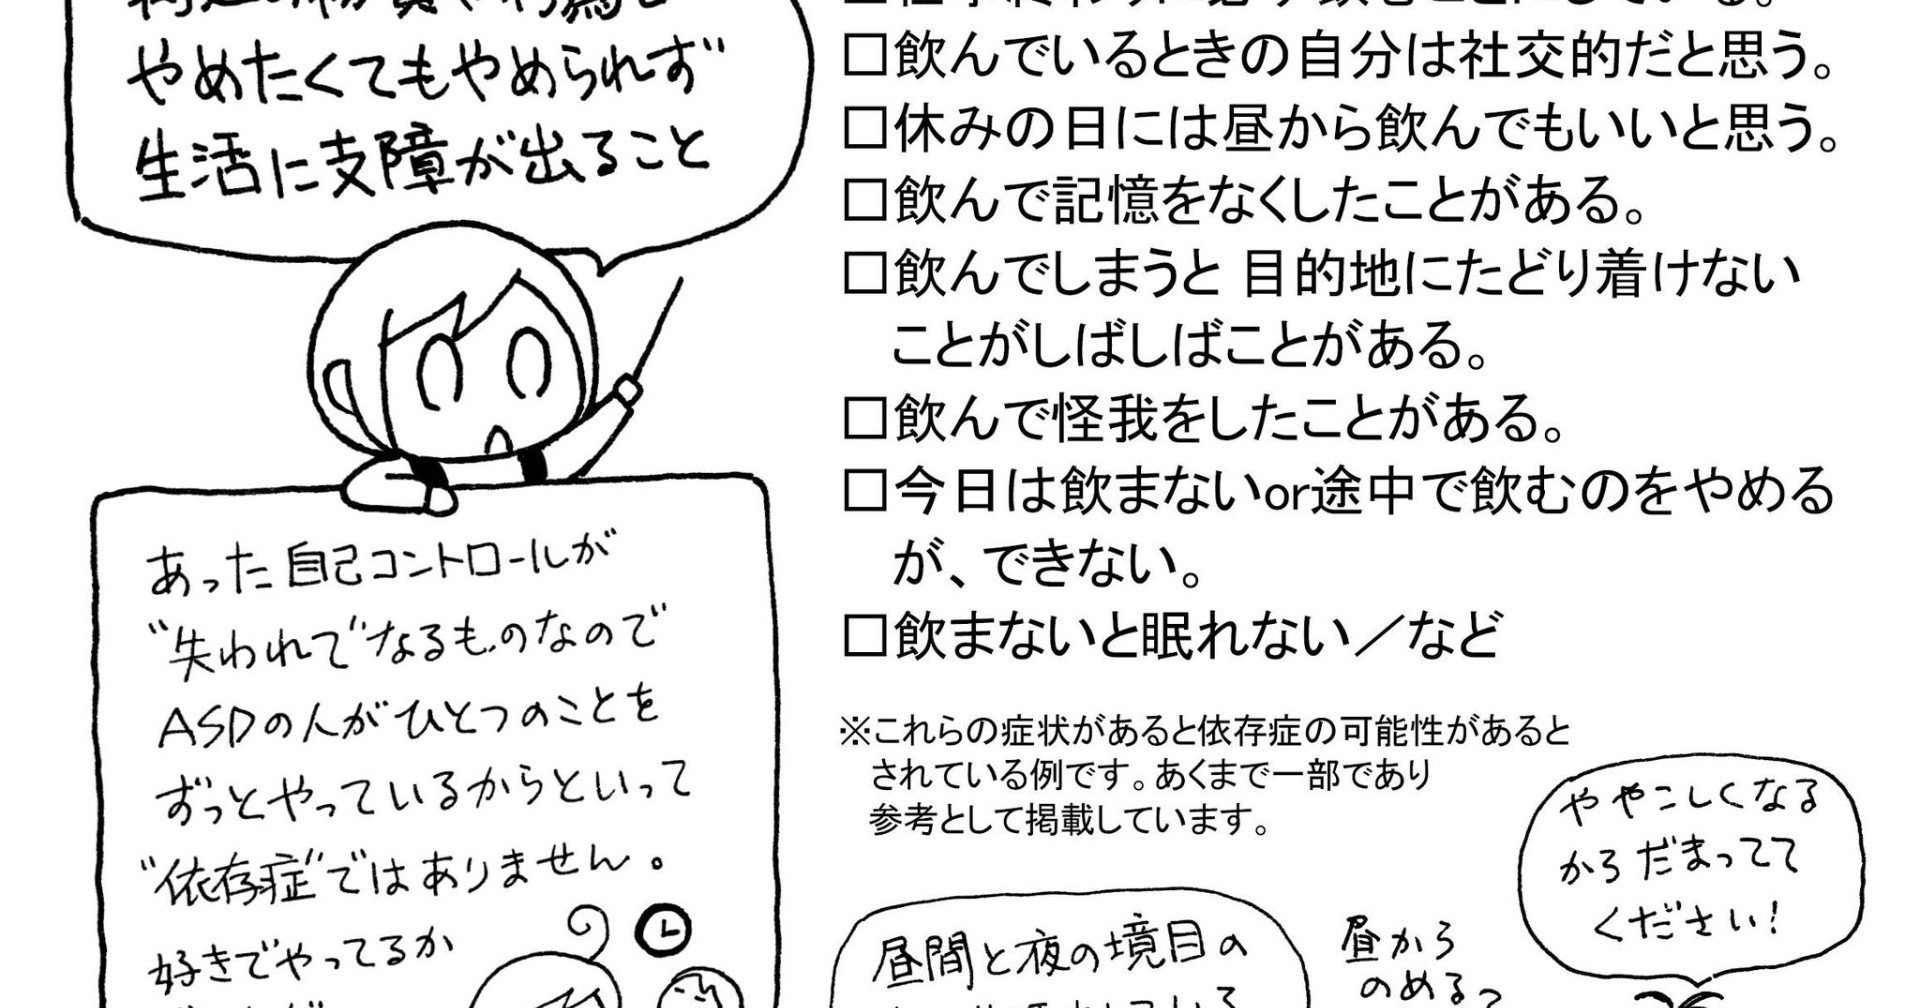 やめたくてもやめられず
生活に支障が出ること
あった自己コントロールが
"失われて"なるものなので
ASDの人がひとつのことを
ずっとやっているからといって
"依存症"ではありません。
好きでやってるか
□飲んでいるときの自分は社交的だと思う。
□休みの日には昼から飲んでもいいと思う。
□飲んで記憶をなくしたことがある。
□飲んでしまうと 目的地にたどり着けない
ことがしばしばことがある。
□飲んで怪我をしたことがある。
□今日は飲まないor途中で飲むのをやめる
が、できない。
□飲まないと眠れない／など
※これらの症状があると依存症の可能性があると
されている例です。あくまで一部であり
参考として掲載しています。
ややこしくなる
からだまってて
ください!
昼間と夜の境目の
昼から
のめる?